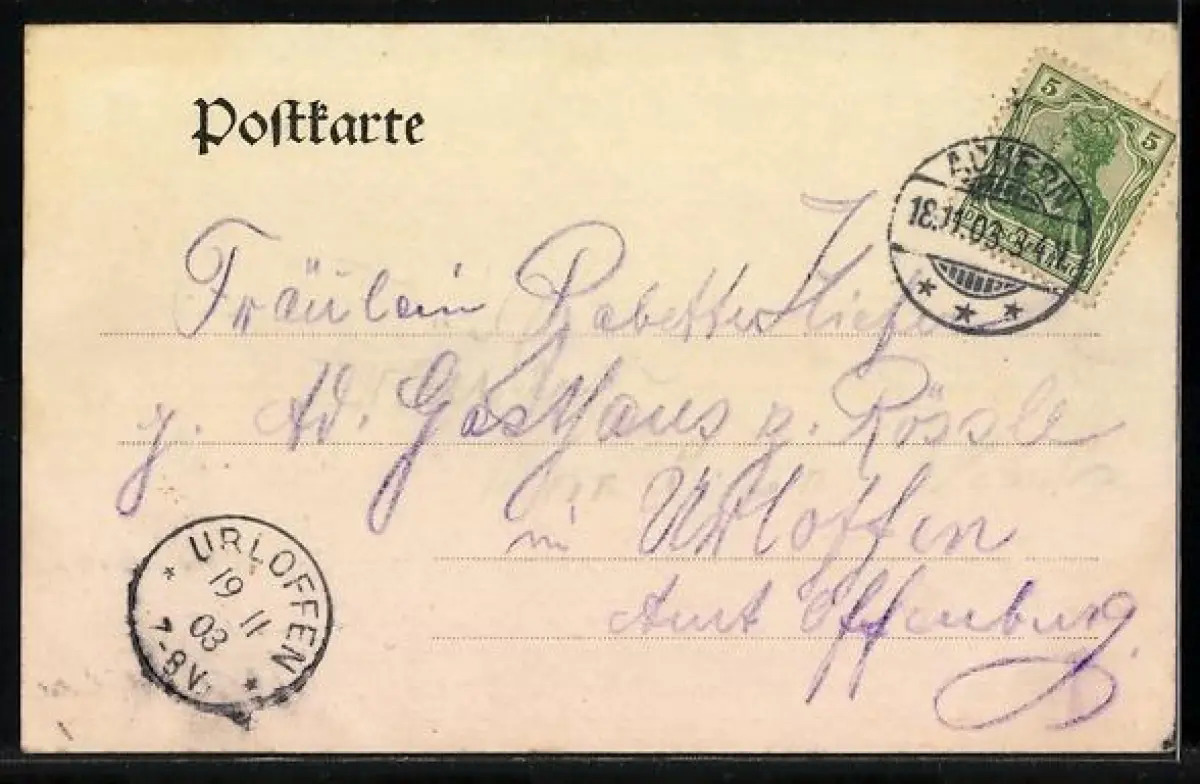 Postkarte
5 5
ACHERN
18.11.03. 3-4 N.
Fräulein Babette
z. Ad. Gasthaus z. Rössle
in Urloffen
Amt Offenburg.
URLOFFEN
19 11
03
7-8 V.